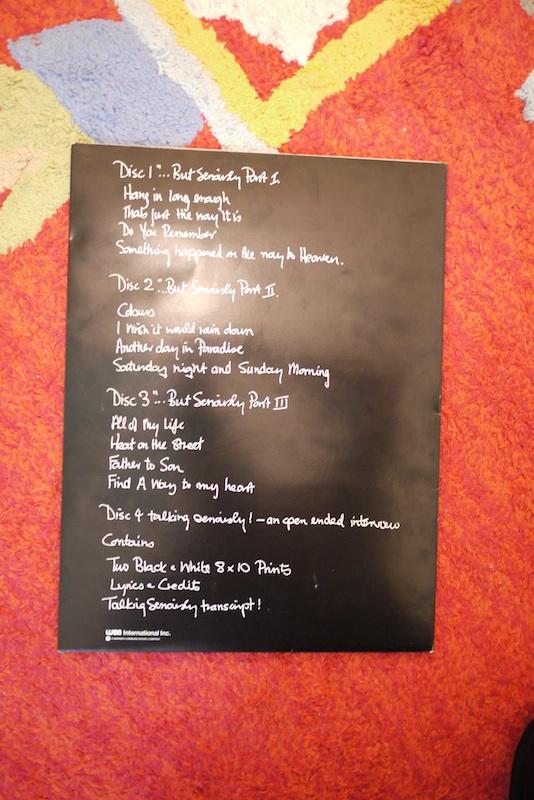 Disc 1 "... But Seriously Part I.
Hang in long enough
Thats just the way it is
Do You Remember
Something happened on the way to Heaven.
Disc 2 "... But Seriously Part II.
Colours
I Wish it would rain down
Another day in Paradise
Saturday night and Sunday Morning
Disc 3 "... But Seriously Part III
All of My Life
Heat on the Street
Father to Son
Find A Way to my heart
Disc 4 talking seriously! - an open ended interview
Contains
Two Black & White 8 x 10 Prints
Lyrics & Credits
Talking Seriously transcript!
WEA International Inc.